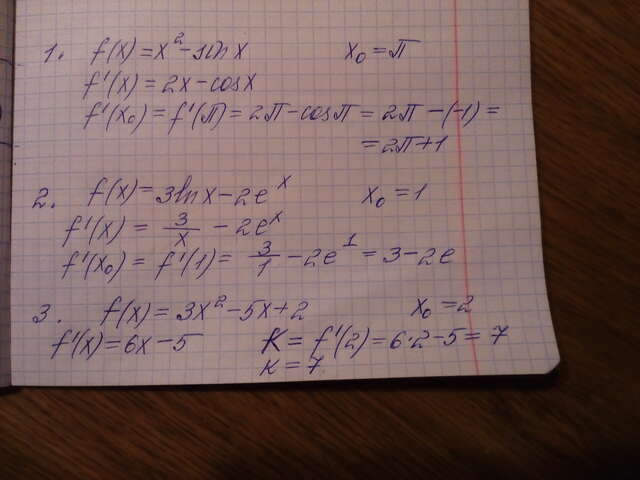 1. f(x) = x² - sin x x₀ = π
f'(x) = 2x - cos x
f'(x₀) = f'(π) = 2π - cos π = 2π - (-1) =
= 2π + 1
2. f(x) = 3ln x - 2eˣ x₀ = 1
f'(x) = 3/x - 2eˣ
f'(x₀) = f'(1) = 3/1 - 2e¹ = 3 - 2e
3. f(x) = 3x² - 5x + 2 x₀ = 2
f'(x) = 6x - 5 K = f'(2) = 6·2 - 5 = 7
к = 7